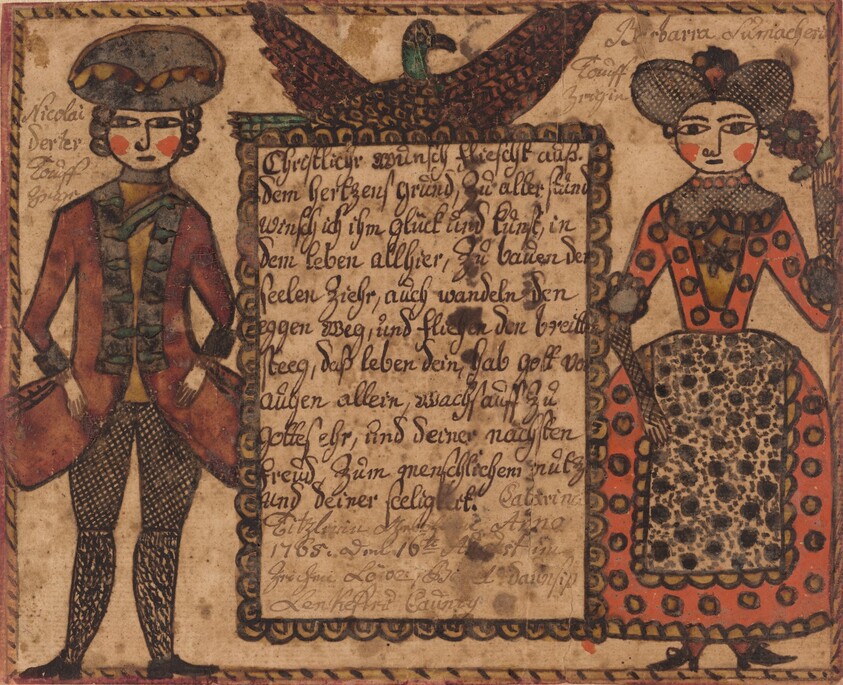 Nicolai
derter
Tauff
Barbarra Sumachers
Tauff
Zeigin
Christliche Wunsch, fliescht auß.
dem hertzens grund, Zu aller stund
winsch ich ihm glück und kunst, in
dem leben allhier, Zu bauen der
seelen Ziehr, auch wandeln den
eggen Weg, und fliehen den breitte
steeg, daß leben dein, hab gott vor
augen allein, Wachs auff Zu
gottes ehr, und deiner nachsten
freud, Zum menschlichem nutz
und deiner seeligkeit. Catarina
Anno
1768. den 16te August in
Caunty